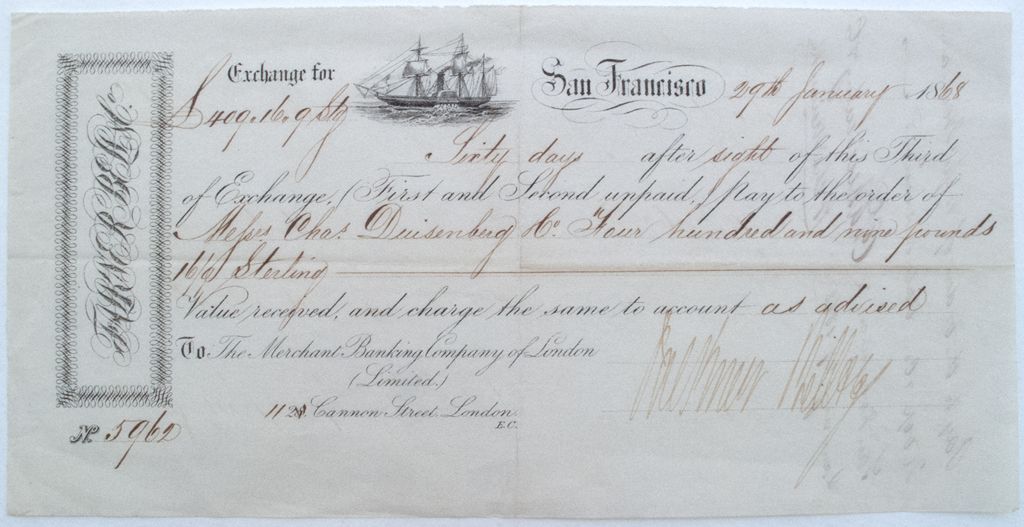 Exchange for San Francisco 29th January 1868
£ 409.16.9 Stg
Sixty days after sight of this Third
of Exchange, (First and Second unpaid,) pay to the order of
Messrs Chas. Duisenberg & Co. Four hundred and nine pounds
16/9 Sterling
Value received, and charge the same to account as advised
To The Merchant Banking Company of London
(Limited.)
112 Cannon Street. London.
E.C.
No. 5962
PARROTT & CO.